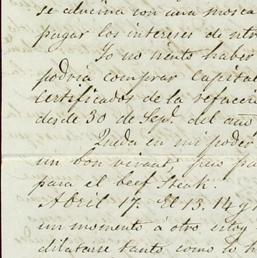 se alucina con una mosca
pagar los intereses de ntr
Yo no siento haber
podria comprar Capital
certificados de la refacci
desde 30 de Sepe. del año
Queda en mi poder
un bon vivant para
para el beef Steak.
Abril 17. El 13. 14 y
un momento á otro estoy
dilatarse tanto como lo h